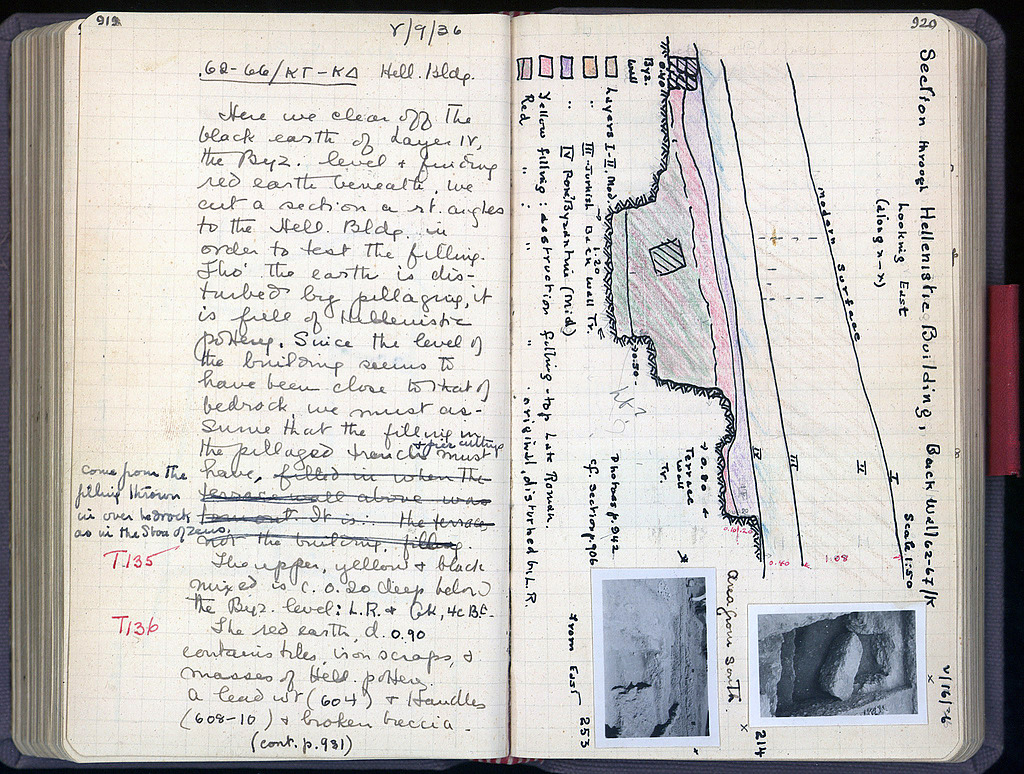 919
V/9/36
62-66/ΚΓ-ΚΔ Hell. Bldg.
Here we clear off the
black earth of Layer IV,
the Byz. level & finding
red earth beneath, we
cut a section a rt. angles
to the Hell. Bldg. in
order to test the filling.
Tho' the earth is dis-
turbed by pillaging, it
is full of Hellenistic
pottery. Since the level of
the building seems to
have been close to that of
bedrock, we must as-
sume that the filling in
the pillaged trench & pier cuttings must
have, filled in when the
terrace wall above was
torn out. It is the terrace
not the building, filling.
come from the
filling thrown
in over bedrock
as in the Stoa of Zeus.
T135
The upper, yellow & black
mixed is c. 0.20 deep below
the Byz. level: L.R. & Gk, 4c B.C.
T136
The red earth, d. 0.90
contains tiles, iron scraps, &
masses of Hell. pottery.
A lead wt (604) & Handles
(608-10) & broken breccia
(cont. p. 931)
920
Section through Hellenistic Building, Back Wall 62-67/Κ
Looking East
(along x-x)
Scale 1:50
V/16/36
modern surface
I
II
III
IV
1.08
0.40
Byz.
Wall
0.40
Layers I-II, Mod.
" III Turkish
" IV Rom/Byzantine (mid)
Yellow filling: destruction filling - top Late Roman
Red " : " " original, disturbed by L.R.
1.20
Back Wall Tr.
-0.50-
→ 0.80 ←
Terrace
Wall
Tr.
Photos p. 942
cf. section p. 906
from East 253
and from South.
x 214